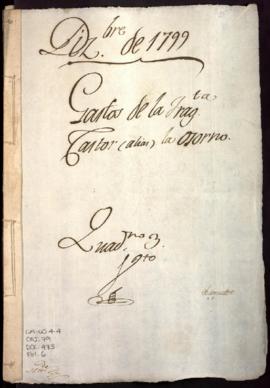 Diz.bre de 1799
Gastos de la Frag.ta
Castor (alias) la Osorno.
Quad.no 3.
gto
CAJ. 79
DOC. 473
FOL. 6